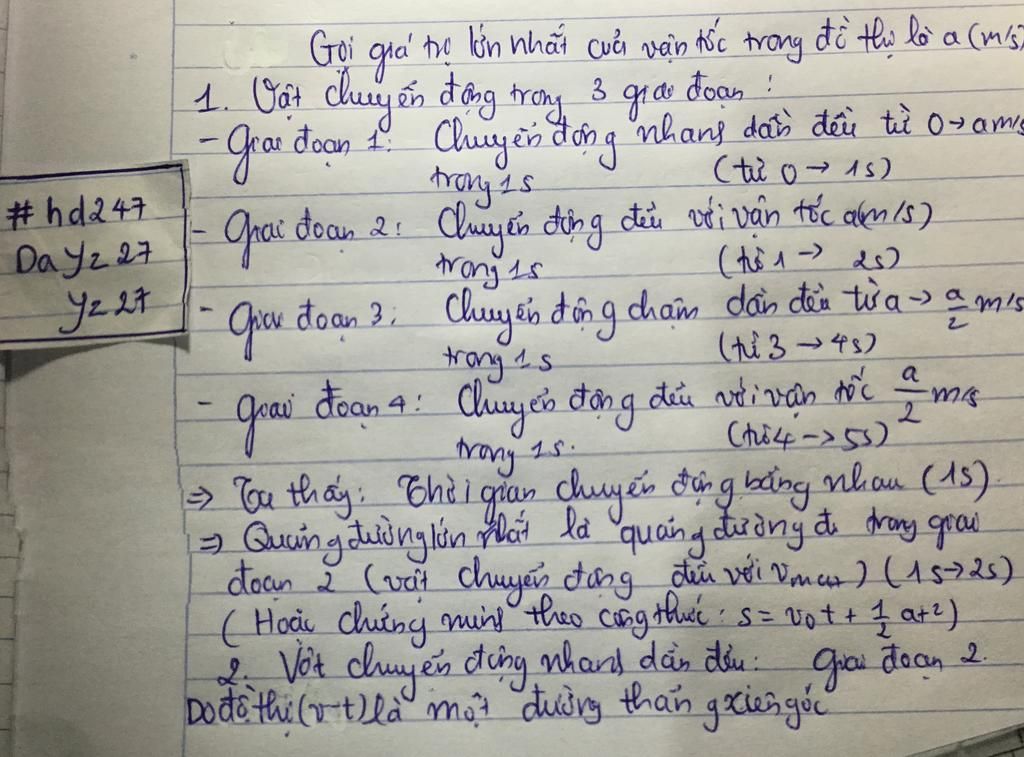 Gọi giá trị lớn nhất của vận tốc trong đồ thị là a (m/s)
1. Vật chuyển động trong 3 giai đoạn :
- Giai đoạn 1: Chuyển động nhanh dần đều từ 0 → a m/s
trong 1s (từ 0 → 1s)
- Giai đoạn 2: Chuyển động đều với vận tốc a(m/s)
trong 1s (từ 1 → 2s)
- Giai đoạn 3: Chuyển động chậm dần đều từ a → a/2 m/s
trong 1s (từ 3 → 4s)
- Giai đoạn 4: Chuyển động đều với vận tốc a/2 m/s
trong 1s. (từ 4 → 5s)
⇒ Ta thấy: Thời gian chuyển động bằng nhau (1s).
⇒ Quãng đường lớn nhất là quãng đường đi trong giai
đoạn 2 (vật chuyển động đều với vmax) (1s → 2s)
(Hoặc chứng minh theo công thức: s = v₀t + 1/2 at²)
2. Vật chuyển động nhanh dần đều: Giai đoạn 2.
Do đồ thị (v-t) là một đường thẳng xiên góc
#hd247
Dayz27
yz27